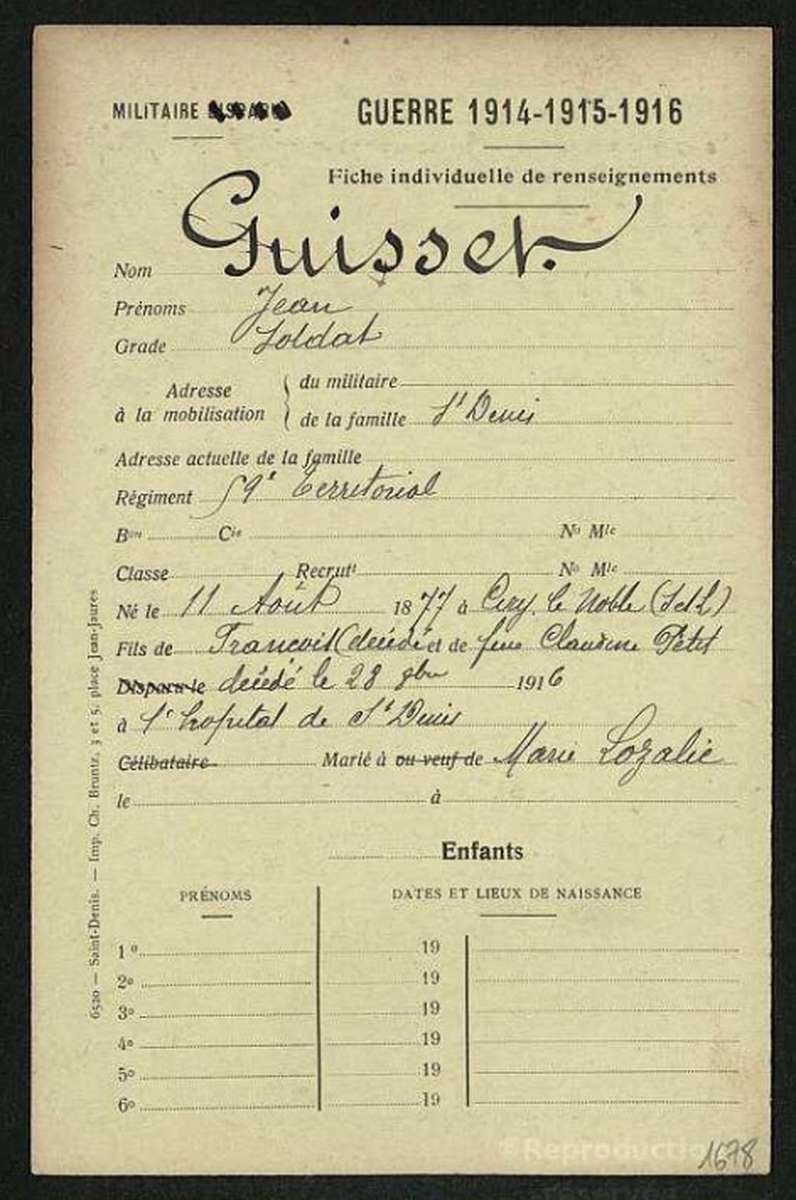 MILITAIRE DISPARU
GUERRE 1914-1915-1916
Fiche individuelle de renseignements
Nom Guisset.
Prénoms Jean
Grade Soldat
Adresse à la mobilisation
du militaire
de la famille St Denis
Adresse actuelle de la famille
Régiment 59e Territorial
Bon Cie No Mle
Classe Recrutt No Mle
Né le 11 Août 1877 à Ciry le Noble (S et L)
Fils de Francois (décédé et de feue Claudine Petit
Disparu le décédé le 28 8bre 1916
à l'hopital de St Denis
Célibataire Marié à ou veuf de Marie Lozalie
le à
Enfants
PRÉNOMS DATES ET LIEUX DE NAISSANCE
1o 19
2o 19
3o 19
4o 19
5o 19
6o 19
6520 — Saint-Denis. — Imp. Ch. Bruntz, 3 et 5, place Jean-Jaures
1678